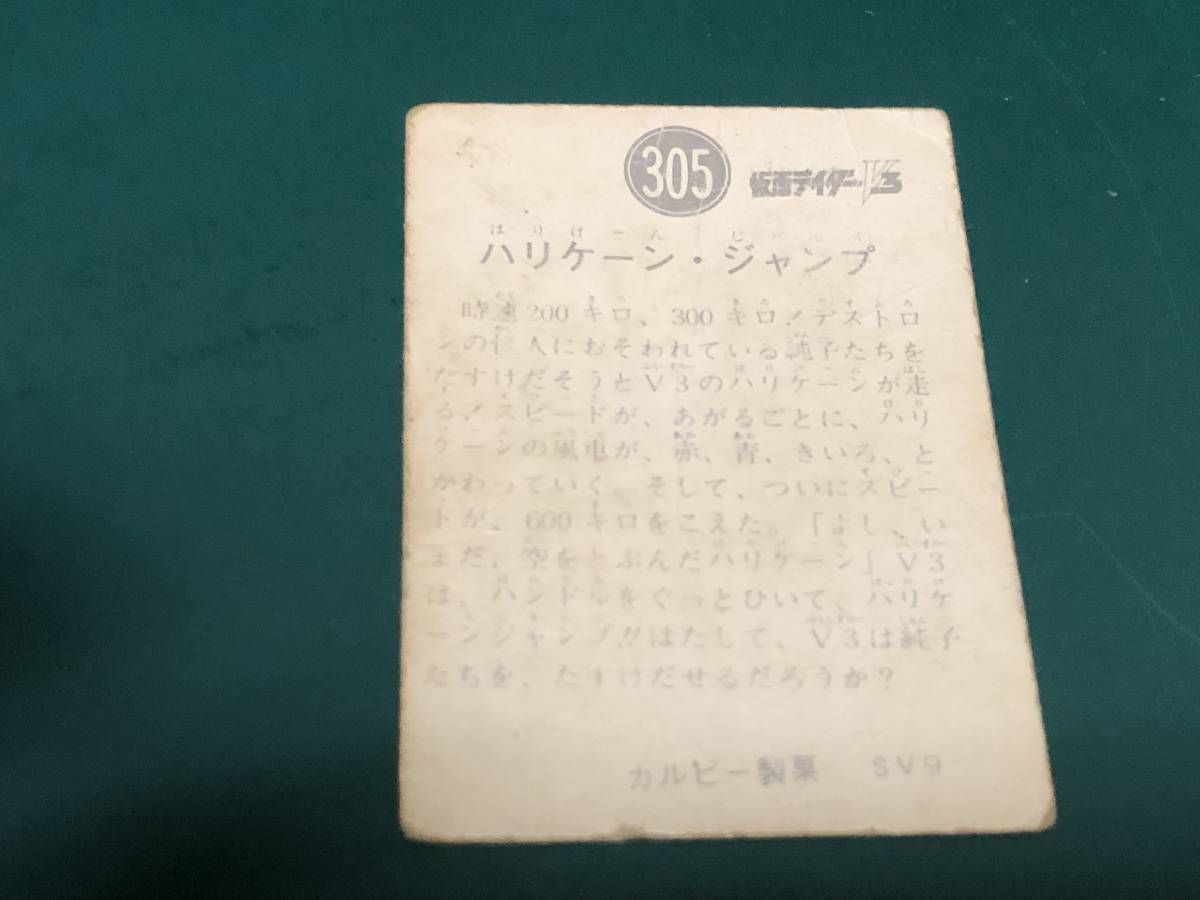 305 仮面ライダーV3
はりけーん じゃんぷ
ハリケーン・ジャンプ
時速200キロ、300キロ！デストロ
ンの怪人におそわれている純子たちを
たすけだそうとV3のハリケーンが走
る！スピードが、あがるごとに、ハリ
ケーンの風車が、赤、青、きいろ、と
かわっていく。そして、ついにスピー
ドが、600キロをこえた。「よし、い
まだ、空をとぶんだハリケーン」V3
は、ハンドルをぐっとひいて、ハリケ
ーンジャンプ!!はたして、V3は純子
たちを、たすけだせるだろうか？
カルビー製菓 SV9